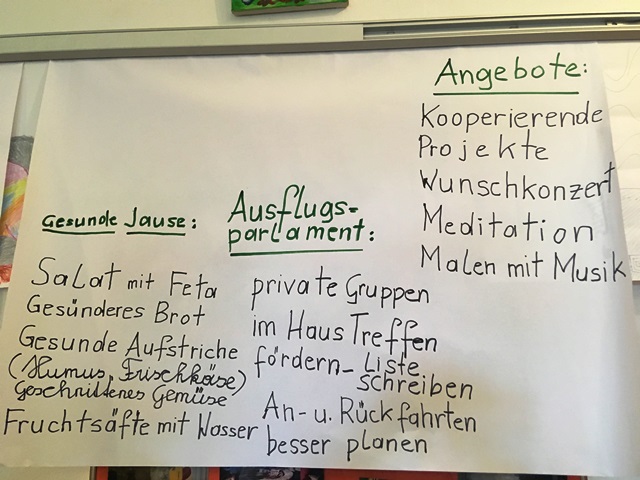 Gesunde Jause:
Salat mit Feta
Gesünderes Brot
Gesunde Aufstriche
(Humus, Frischkäse)
Geschnittenes Gemüse
Fruchtsäfte mit Wasser
Ausflugs-
parlament:
private Gruppen
im Haus Treffen
fördern - Liste
schreiben
An- u. Rückfahrten
besser planen
Angebote:
Kooperierende
Projekte
Wunschkonzert
Meditation
Malen mit Musik